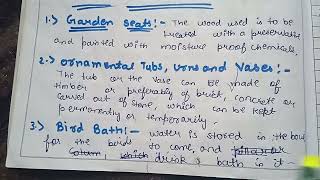 1.) Garden Seats:- The wood used is to be
treated with a preservative
and painted with moisture proof chemicals.
2.) Ornamental Tubs, Urns and Vases:-
The tub or the vase can be made of
timber or preferably of brick, concrete or
carved out of stone, which can be kept
permanently or temporarily.
3.) Bird Bath:- water is stored in the bowl
for the birds to come, and
drink & bath in it